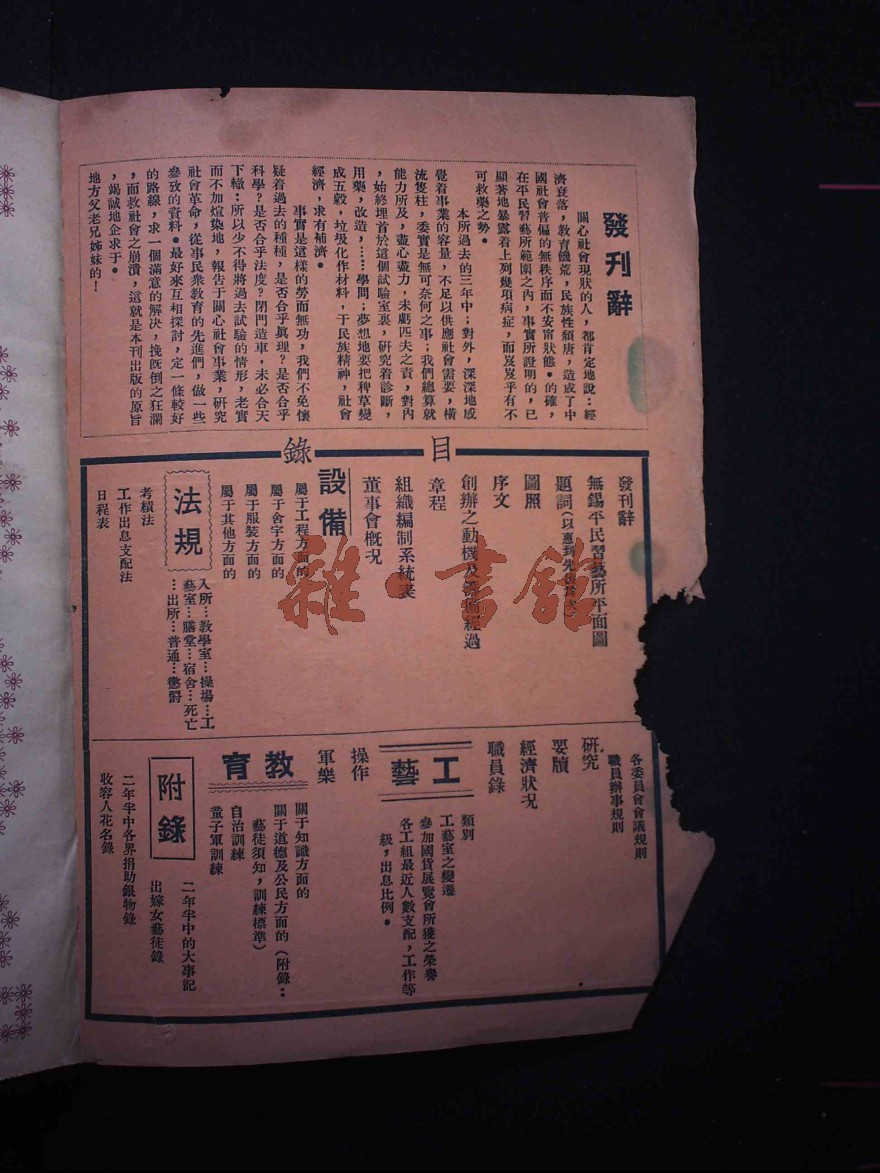 發刊辭
關心社會現狀的人，都肯定地說：經
濟衰落，教育饑荒，民族性頹唐，造成了中
國社會普偏的無秩序而不安甯狀態。的確，
在平民習藝所範圍之內，事實所證明的，已
顯著地暴露着上列幾項病症，而岌岌乎有不
可救藥之勢。
本所過去的三年中；對外，深深地感
覺着事業的容量，不足以供應社會需要，橫
流隻柱，委實是無可奈何之事；我們總算就
能力所及，盡心盡力，未虧匹夫之責，對內
，始終埋首於這個試驗室裏，研究着診斷，
用藥，改造，……學問；夢想地要把稗草變
成五穀，垃圾化作材料，于民族精神，社會
經濟，求有補濟。
事實是這樣的勞而無功，我們不免懷
疑着過去的種種，是否合乎眞理？是否合乎
科學？是否合乎法度？閉門造車，未必合天
下轍：所以少不得將過去試驗的情形，老實
而不加煊染地，報告于關心社會事業，研究
社會革命，從事民衆教育的先進們，做一些
參攷的資料。最好來互相探討，定一條較好
的路線，求一個滿意的解決，挽既倒之狂瀾
，而救社會之崩潰，這就是本刊出版的原旨
，竭誠地企求于。
地方父老兄姊妹的！
目錄
發刊辭
無錫平民習藝所平面圖
題詞（以惠到先後
圖照
序文
創辦之動機及經過
章程
組織編制系統表
董事會槪況
設備
屬于工程方面的
屬于舍宇方面的
屬于服裝方面的
屬于其他方面的
法規
入所…教學室…操場…工
藝室…膳堂…宿舍…死亡
…出所…普通…懲罰
考績法
工作出息支配法
日程表
各委員會會議規則
職員辦事規則
研究
要牘
經濟狀况
職員錄
工藝
類別
工藝室之變遷
參加國貨展覽會所獲之榮譽
各工組最近人數支配，工作等
級，出息比例。
操作
軍樂
教育
關于知識方面的
關于道德及公民方面的（附錄：
藝徒須知，訓練標準）
自治訓練
童子軍訓練
附錄
二年半中的大事記
出嫁女藝徒錄
二年半中各界捐助銀物錄
收容人花名錄
雜·書館